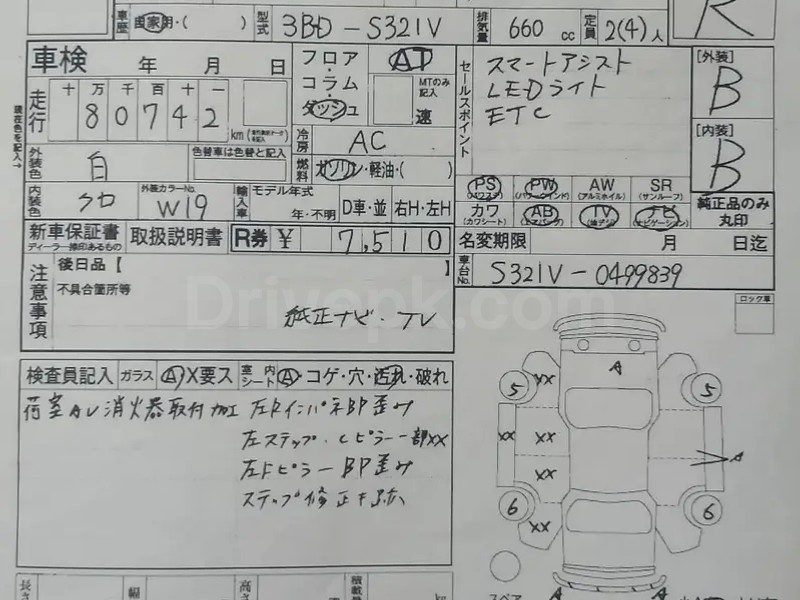 車歴 自家用・( ) 型式 3BD-S321V 排気量 660 cc 定員 2(4)人
R
車検 年 月 日
フロア AT
コラム MTのみ記入
ダッシュ 速
走行 十 万 千 百 十 一
80742 km
冷房 AC
燃料 ガソリン・軽油・( )
セールスポイント
スマートアシスト
LEDライト
ETC
[外装]
B
[内装]
B
外装色 白 色替車は色替と記入
内装色 クロ 外装カラーNo. W19 輸入車 モデル年式 年・不明 D車・並 右H・左H
PS PW AW SR
(パワステ) (パワーウインド) (アルミホイル) (サンルーフ)
カワ AB TV ナビ
(カワシート) (エアバッグ) (ナビゲーション)
純正品のみ丸印
新車保証書 取扱説明書 R券 ¥ 7,510
ディーラー捺印あるもの
名変期限 月 日迄
車台No. S321V-0499839
注意事項
後日品【 】
不具合箇所等
純正ナビ・TV
ロック車
検査員記入 ガラス A X要ス 室内シート A・コゲ・穴・汚れ・破れ
荷室AU 消火器取付加工 左Rインパネ部歪み
左ステップ・Cピラー一部XX
左Fピラー部歪み
ステップ修正キ跡
A
5 XX 5
XX XX A
XX
6 6
XX
スペア A A
長さ 幅 高さ 積載量 kg
Drivepk.com